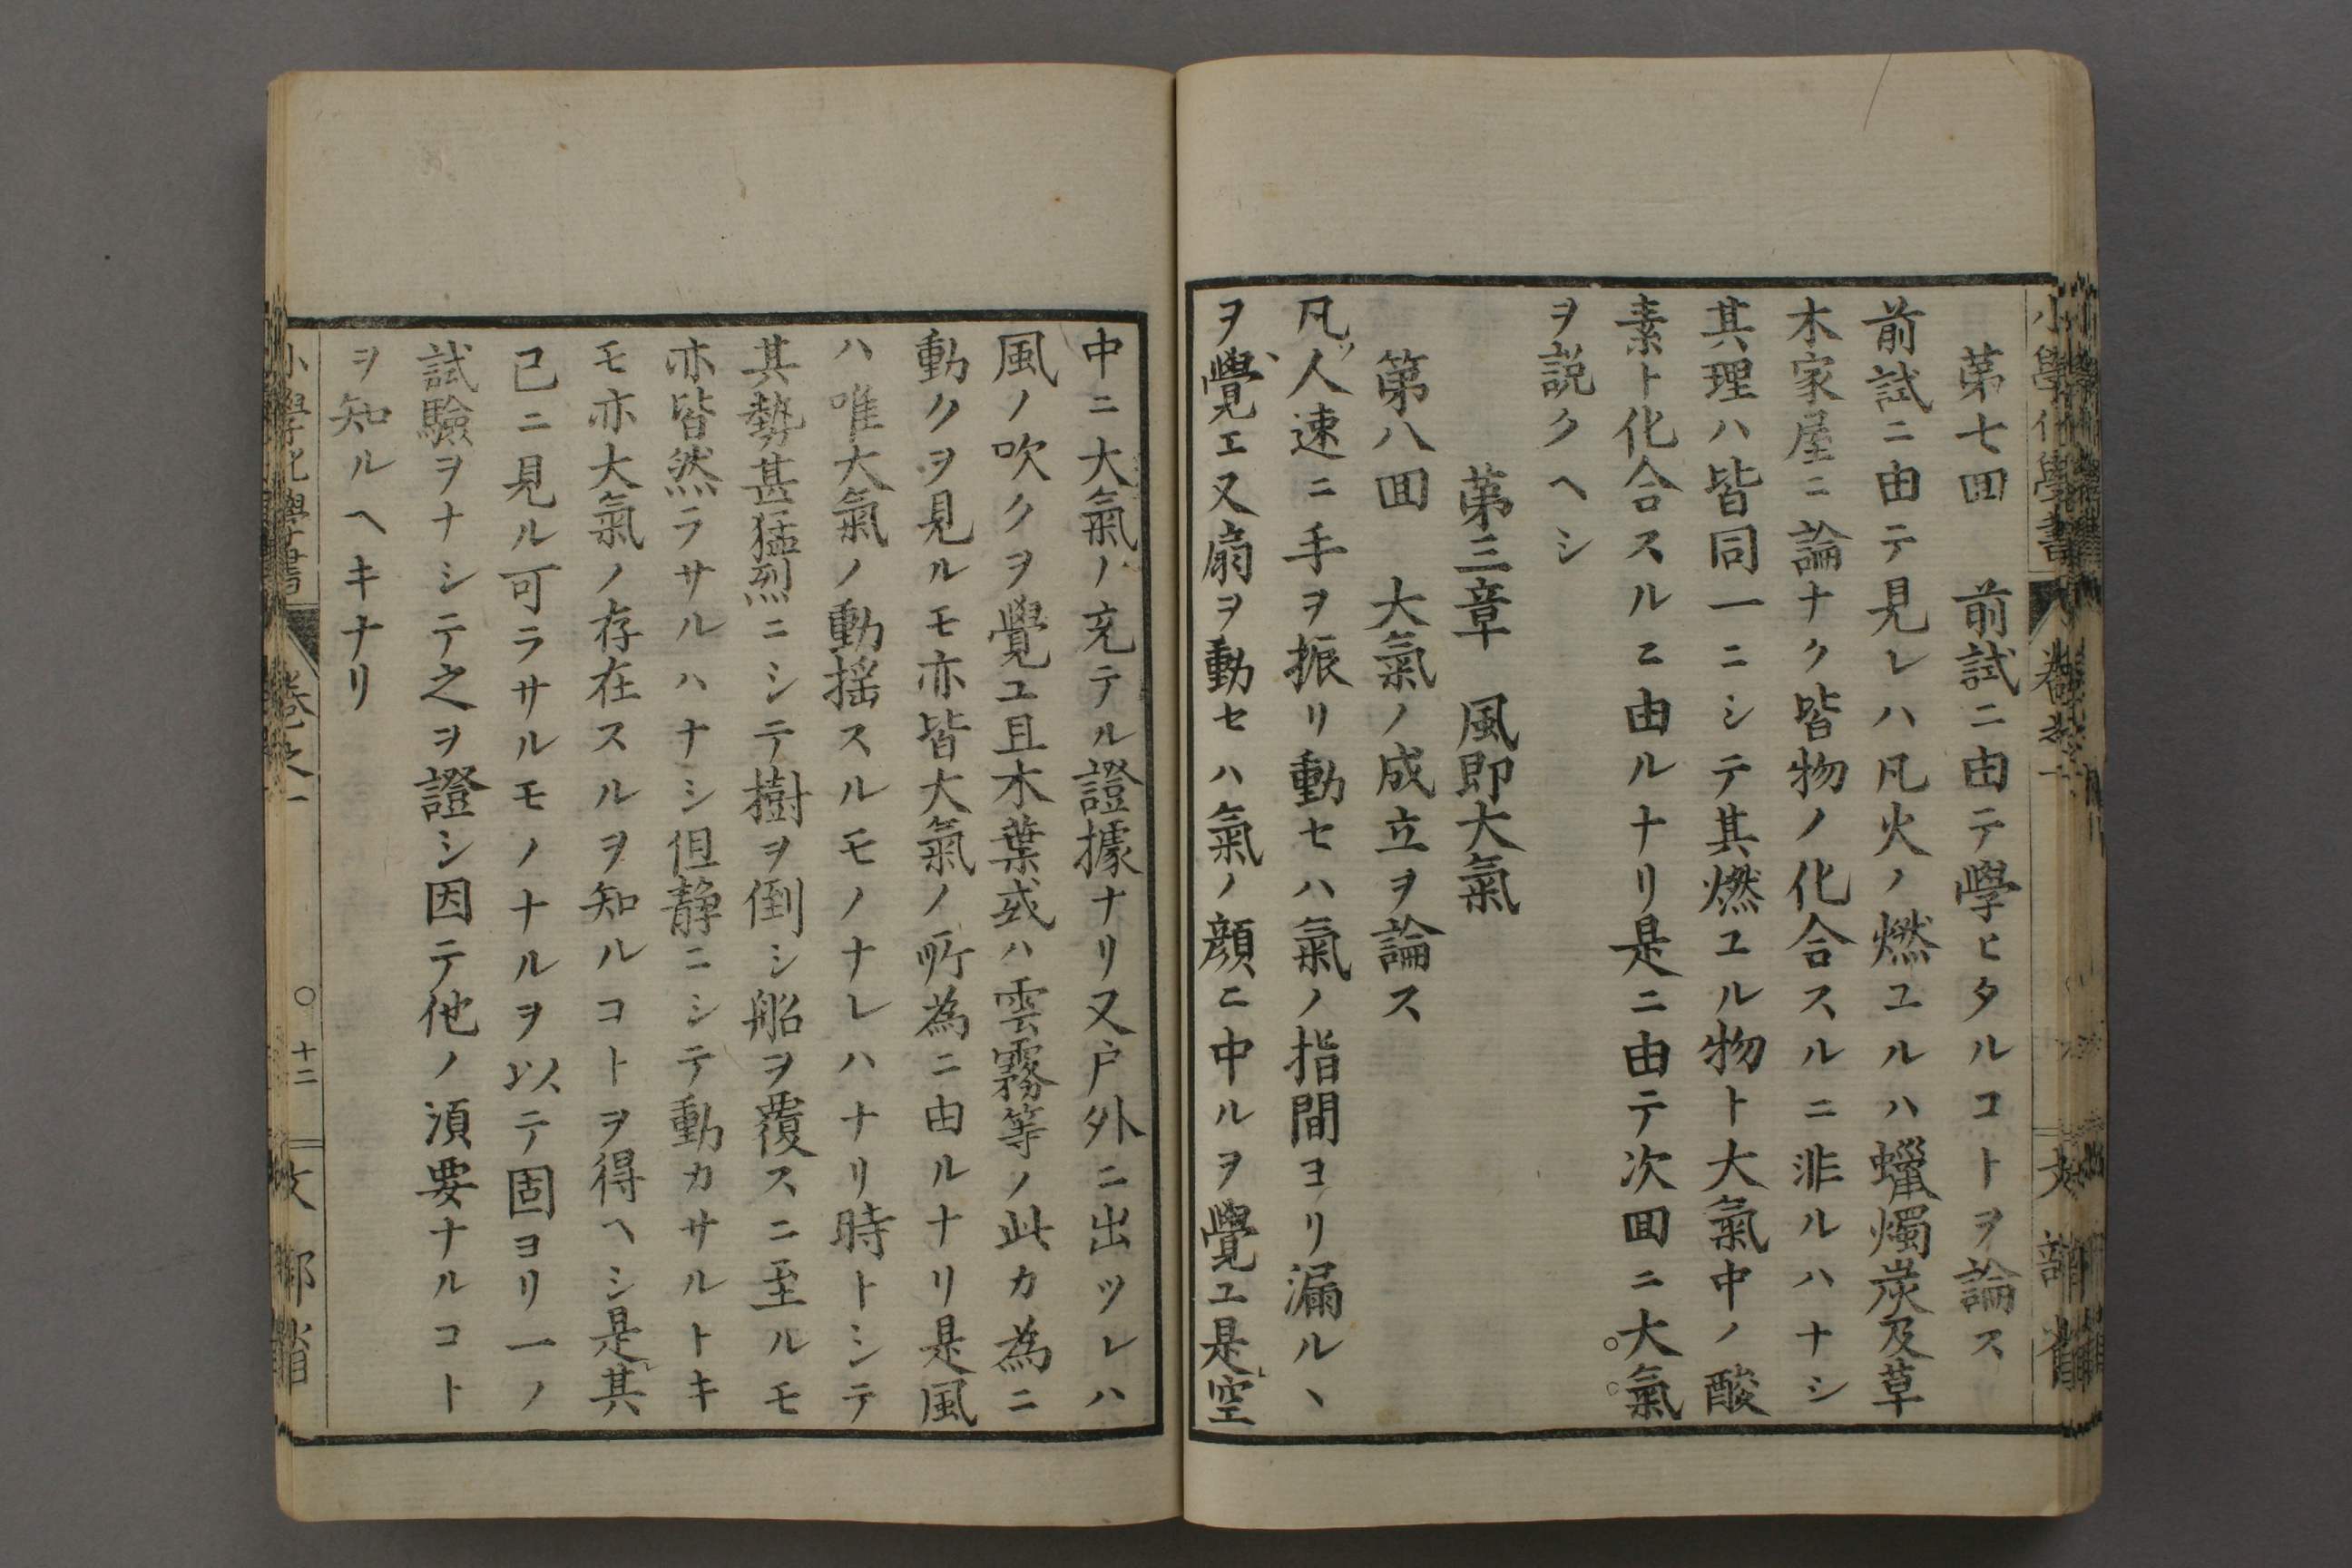 小學化學書 卷之一 文部省
第七回 前試ニ由テ學ヒタルコトヲ論ス
前試ニ由テ見レハ凡火ノ燃ユルハ蠟燭炭及草
木家屋ニ論ナク皆物ノ化合スルニ非ルハナシ
其理ハ皆同一ニシテ其燃ユル物ト大氣中ノ酸
素ト化合スルニ由ルナリ是ニ由テ次回ニ大氣
ヲ説クヘシ
第三章 風即大氣
第八回 大氣ノ成立ヲ論ス
凡ソ人速ニ手ヲ振リ動セハ氣ノ指間ヨリ漏ルヽ
ヲ覺エ又扇ヲ動セハ氣ノ顔ニ中ルヲ覺ユ是レ空
中ニ大氣ノ充テル證據ナリ又戸外ニ出ツレハ
風ノ吹クヲ覺ユ且木葉或ハ雲霧等ノ此カ為ニ
動クヲ見ルモ亦皆大氣ノ所為ニ由ルナリ是風
ハ唯大氣ノ動揺スルモノナレハナリ時トシテ
其勢甚猛烈ニシテ樹ヲ倒シ船ヲ覆スニ至ルモ
亦皆然ラサルハナシ但静ニシテ動カサルトキ
モ亦大氣ノ存在スルヲ知ルコトヲ得ヘシ是レ其
已ニ見ル可ラサルモノナルヲ以テ固ヨリ一ノ
試驗ヲナシテ之ヲ證シ因テ他ノ須要ナルコト
ヲ知ルヘキナリ
小學化學書 卷之一 〇十二 文部省